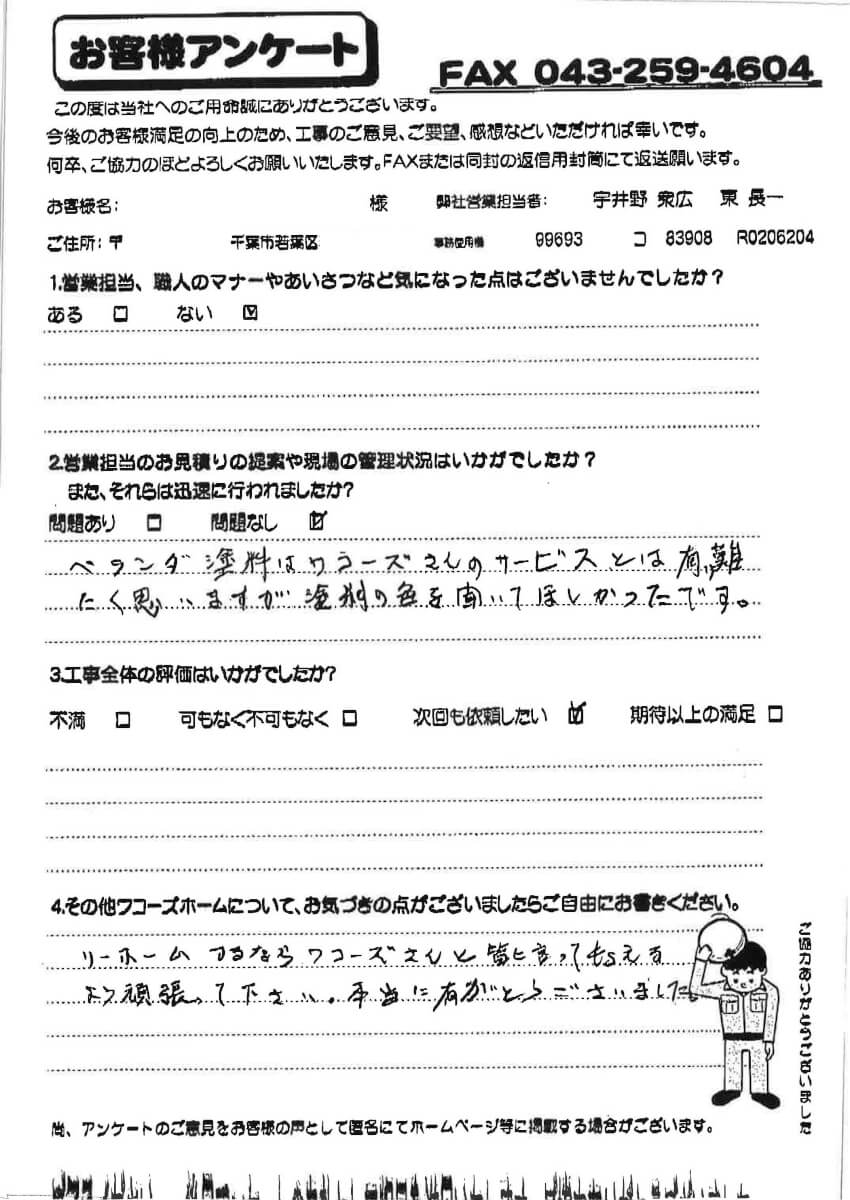 お客様アンケート
FAX 043-259-4604
この度は当社へのご用命誠にありがとうございます。
今後のお客様満足の向上のため、工事のご意見、ご要望、感想などいただければ幸いです。
何卒、ご協力のほどよろしくお願いいたします。FAXまたは同封の返信用封筒にて返送願います。
お客様名: 様 弊社営業担当者: 宇井野 衆広 東 長一
ご住所:〒 千葉市若葉区 事務使用欄 99693 コ 83908 R0206204
1.営業担当、職人のマナーやあいさつなど気になった点はございませんでしたか?
ある □ ない ☑
2.営業担当のお見積りの提案や現場の管理状況はいかがでしたか?
また、それらは迅速に行われましたか?
問題あり □ 問題なし ☑
ベランダ塗料はワコーズさんのサービスとは有難
たく思いますが塗料の色を聞いてほしかったです。
3.工事全体の評価はいかがでしたか?
不満 □ 可もなく不可もなく □ 次回も依頼したい ☑ 期待以上の満足 □
4.その他ワコーズホームについて、お気づきの点がございましたらご自由にお書きください。
リーホームするならワコーズさんと皆に言ってもらえる
よう頑張って下さい。本当に有がとうございました。
ご協力ありがとうございました
尚、アンケートのご意見をお客様の声として匿名にてホームページ等に掲載する場合がございます。